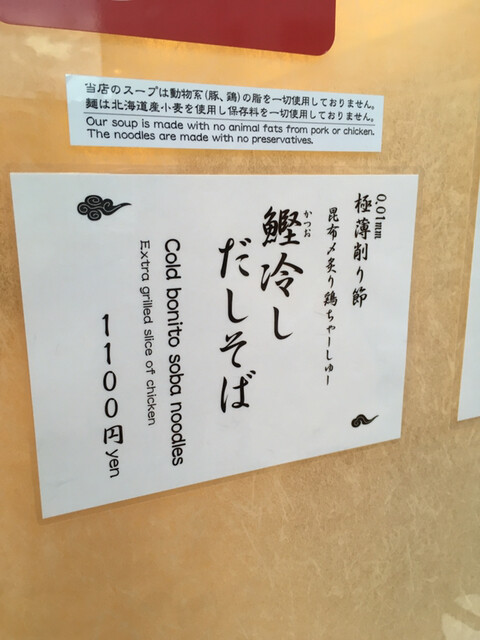 当店のスープは動物系(豚、鶏)の脂を一切使用しておりません。
麺は北海道産小麦を使用し保存料を一切使用しておりません。
Our soup is made with no animal fats from pork or chicken.
The noodles are made with no preservatives.
0.01mm
極薄削り節
昆布〆炙り鶏ちゃーしゅー
かつお
鰹冷し
だしそば
Cold bonito soba noodles
Extra grilled slice of chicken
1100円yen